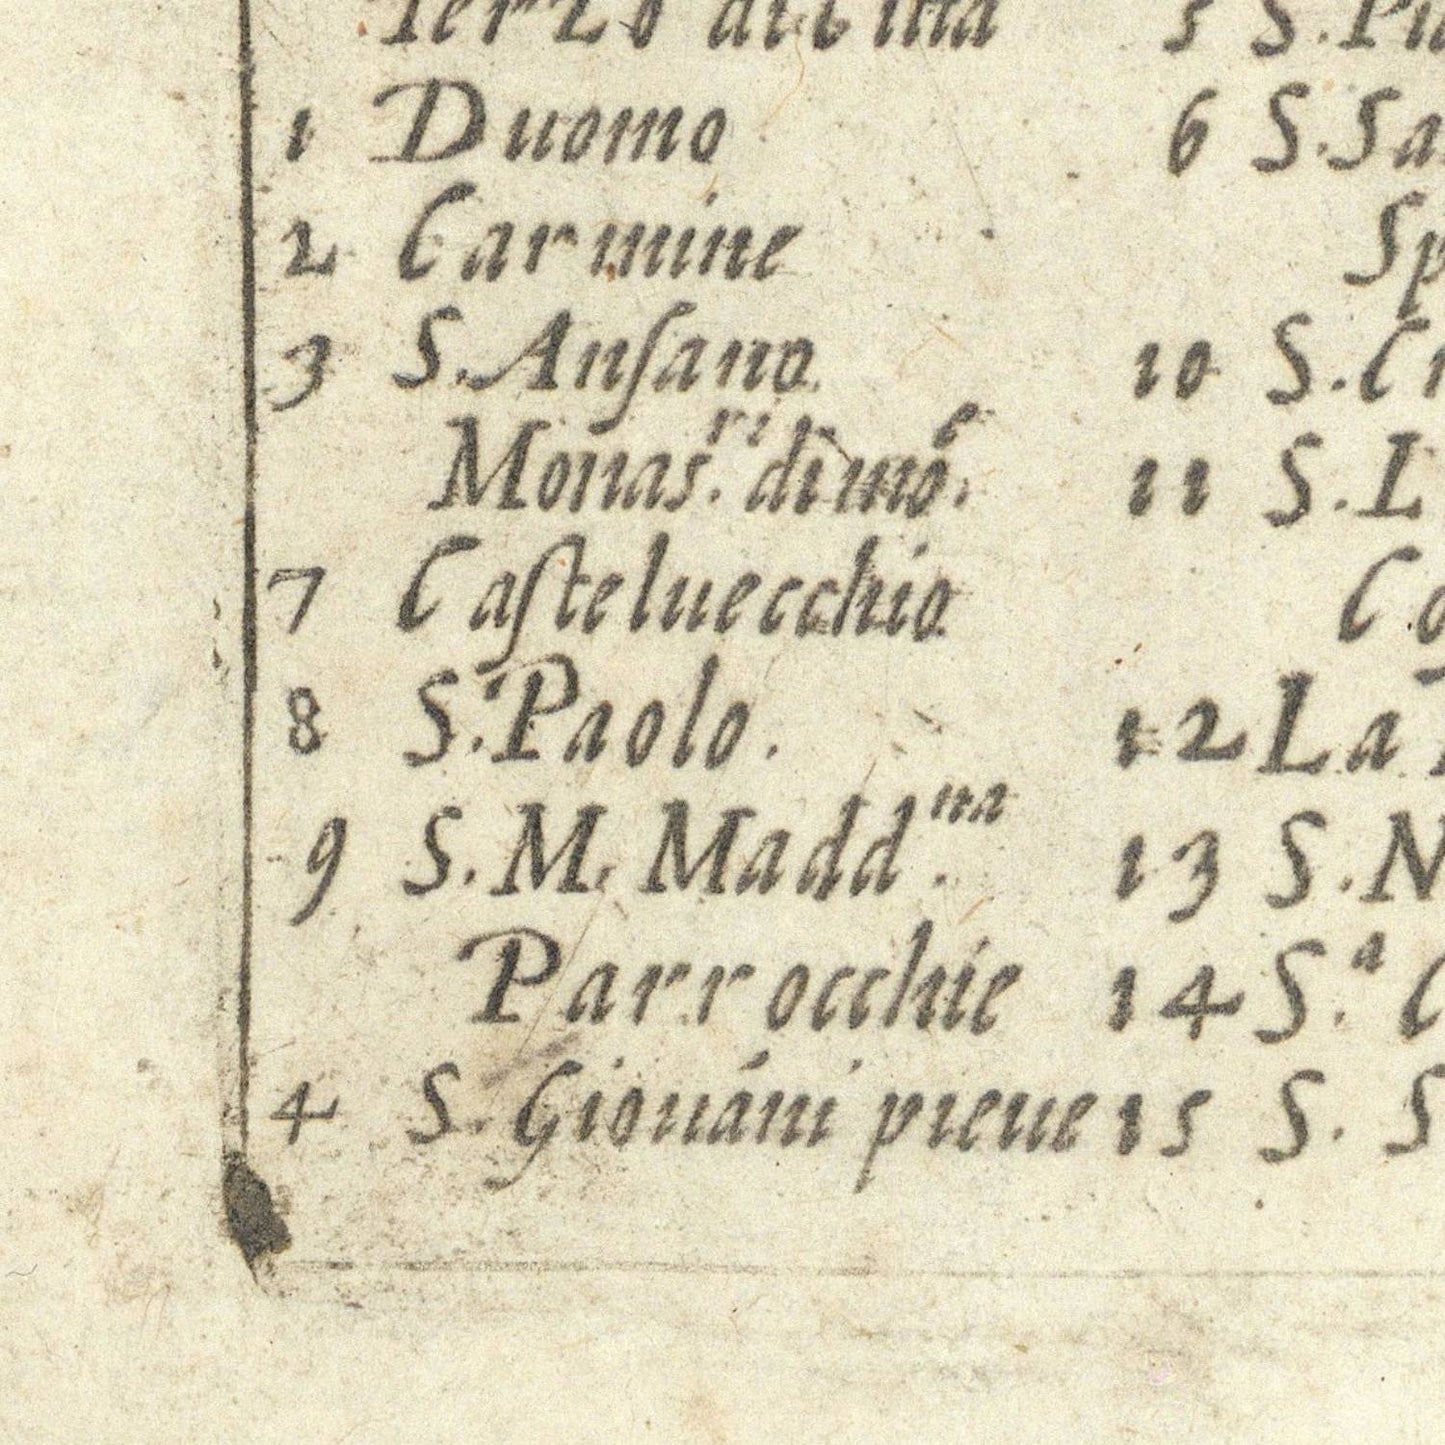 Terzo di Citta
1 Duomo
2 Carmine
3 S. Anſano
Monas.ri di mo.e
7 Caſteluecchio
8 S. Paolo.
9 S. M. Madd.na
Parrocchie
4 S. Giouáni pieue
5 S.
6 S. Sa
Sp
10 S. C
11 S. L
Co
12 La
13 S. N
14 S.a C
15 S. S